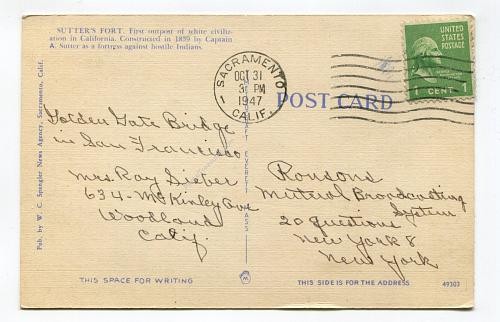 SUTTER'S FORT. First outpost of white civiliz-
ation in California. Constructed in 1839 by Captain
A. Sutter as a fortress against hostile Indians.
Pub. by W. C. Spangler News Agency, Sacramento, Calif.
Golden Gate Bridge
in San Francisco
Mrs. Ray Sieber
634 - McKinley Ave
Woodland
Calif.
THIS SPACE FOR WRITING
EVERETT MASS
SACRAMENTO
OCT 31
3 PM
1947
CALIF.
POST CARD
UNITED
STATES
POSTAGE
1 CENT 1
Ronsons
Mutual Broadcasting
System
20 questions
New York 8
New York
THIS SIDE IS FOR THE ADDRESS
49303